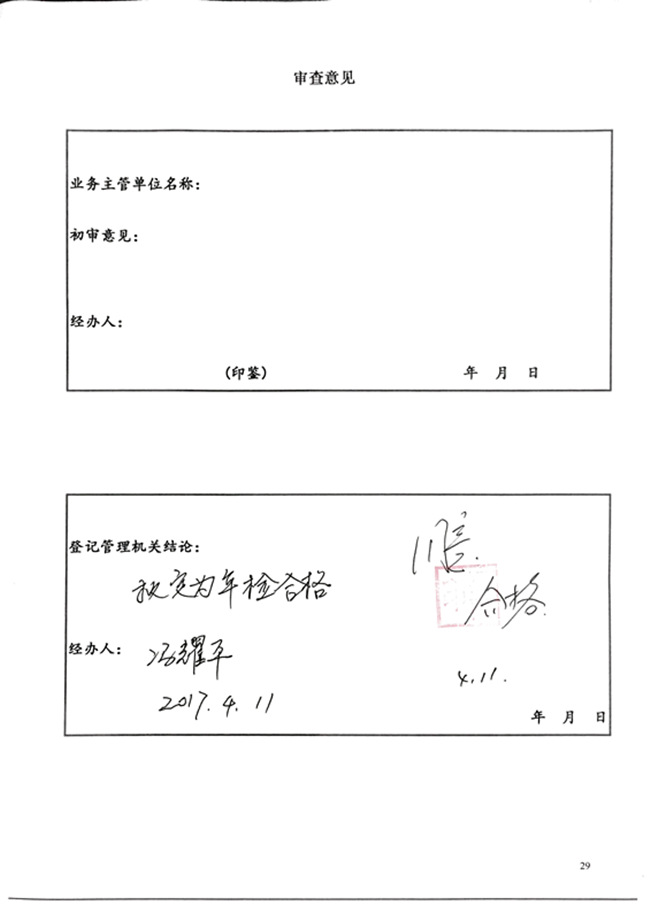 审查意见
业务主管单位名称：
初审意见：
经办人：
（印鉴） 年 月 日
登记管理机关结论：
拟定为年检合格
合格
经办人：冯耀平
4.11.
2017.4.11
年 月 日
29